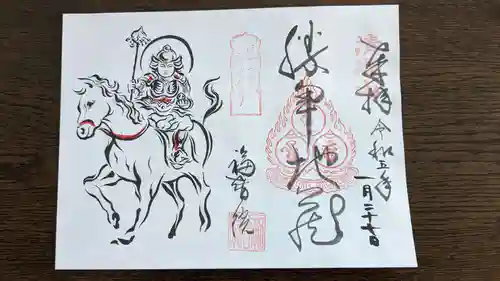 奉拝
令和五年
一月二十七日
勝軍地蔵
福智院